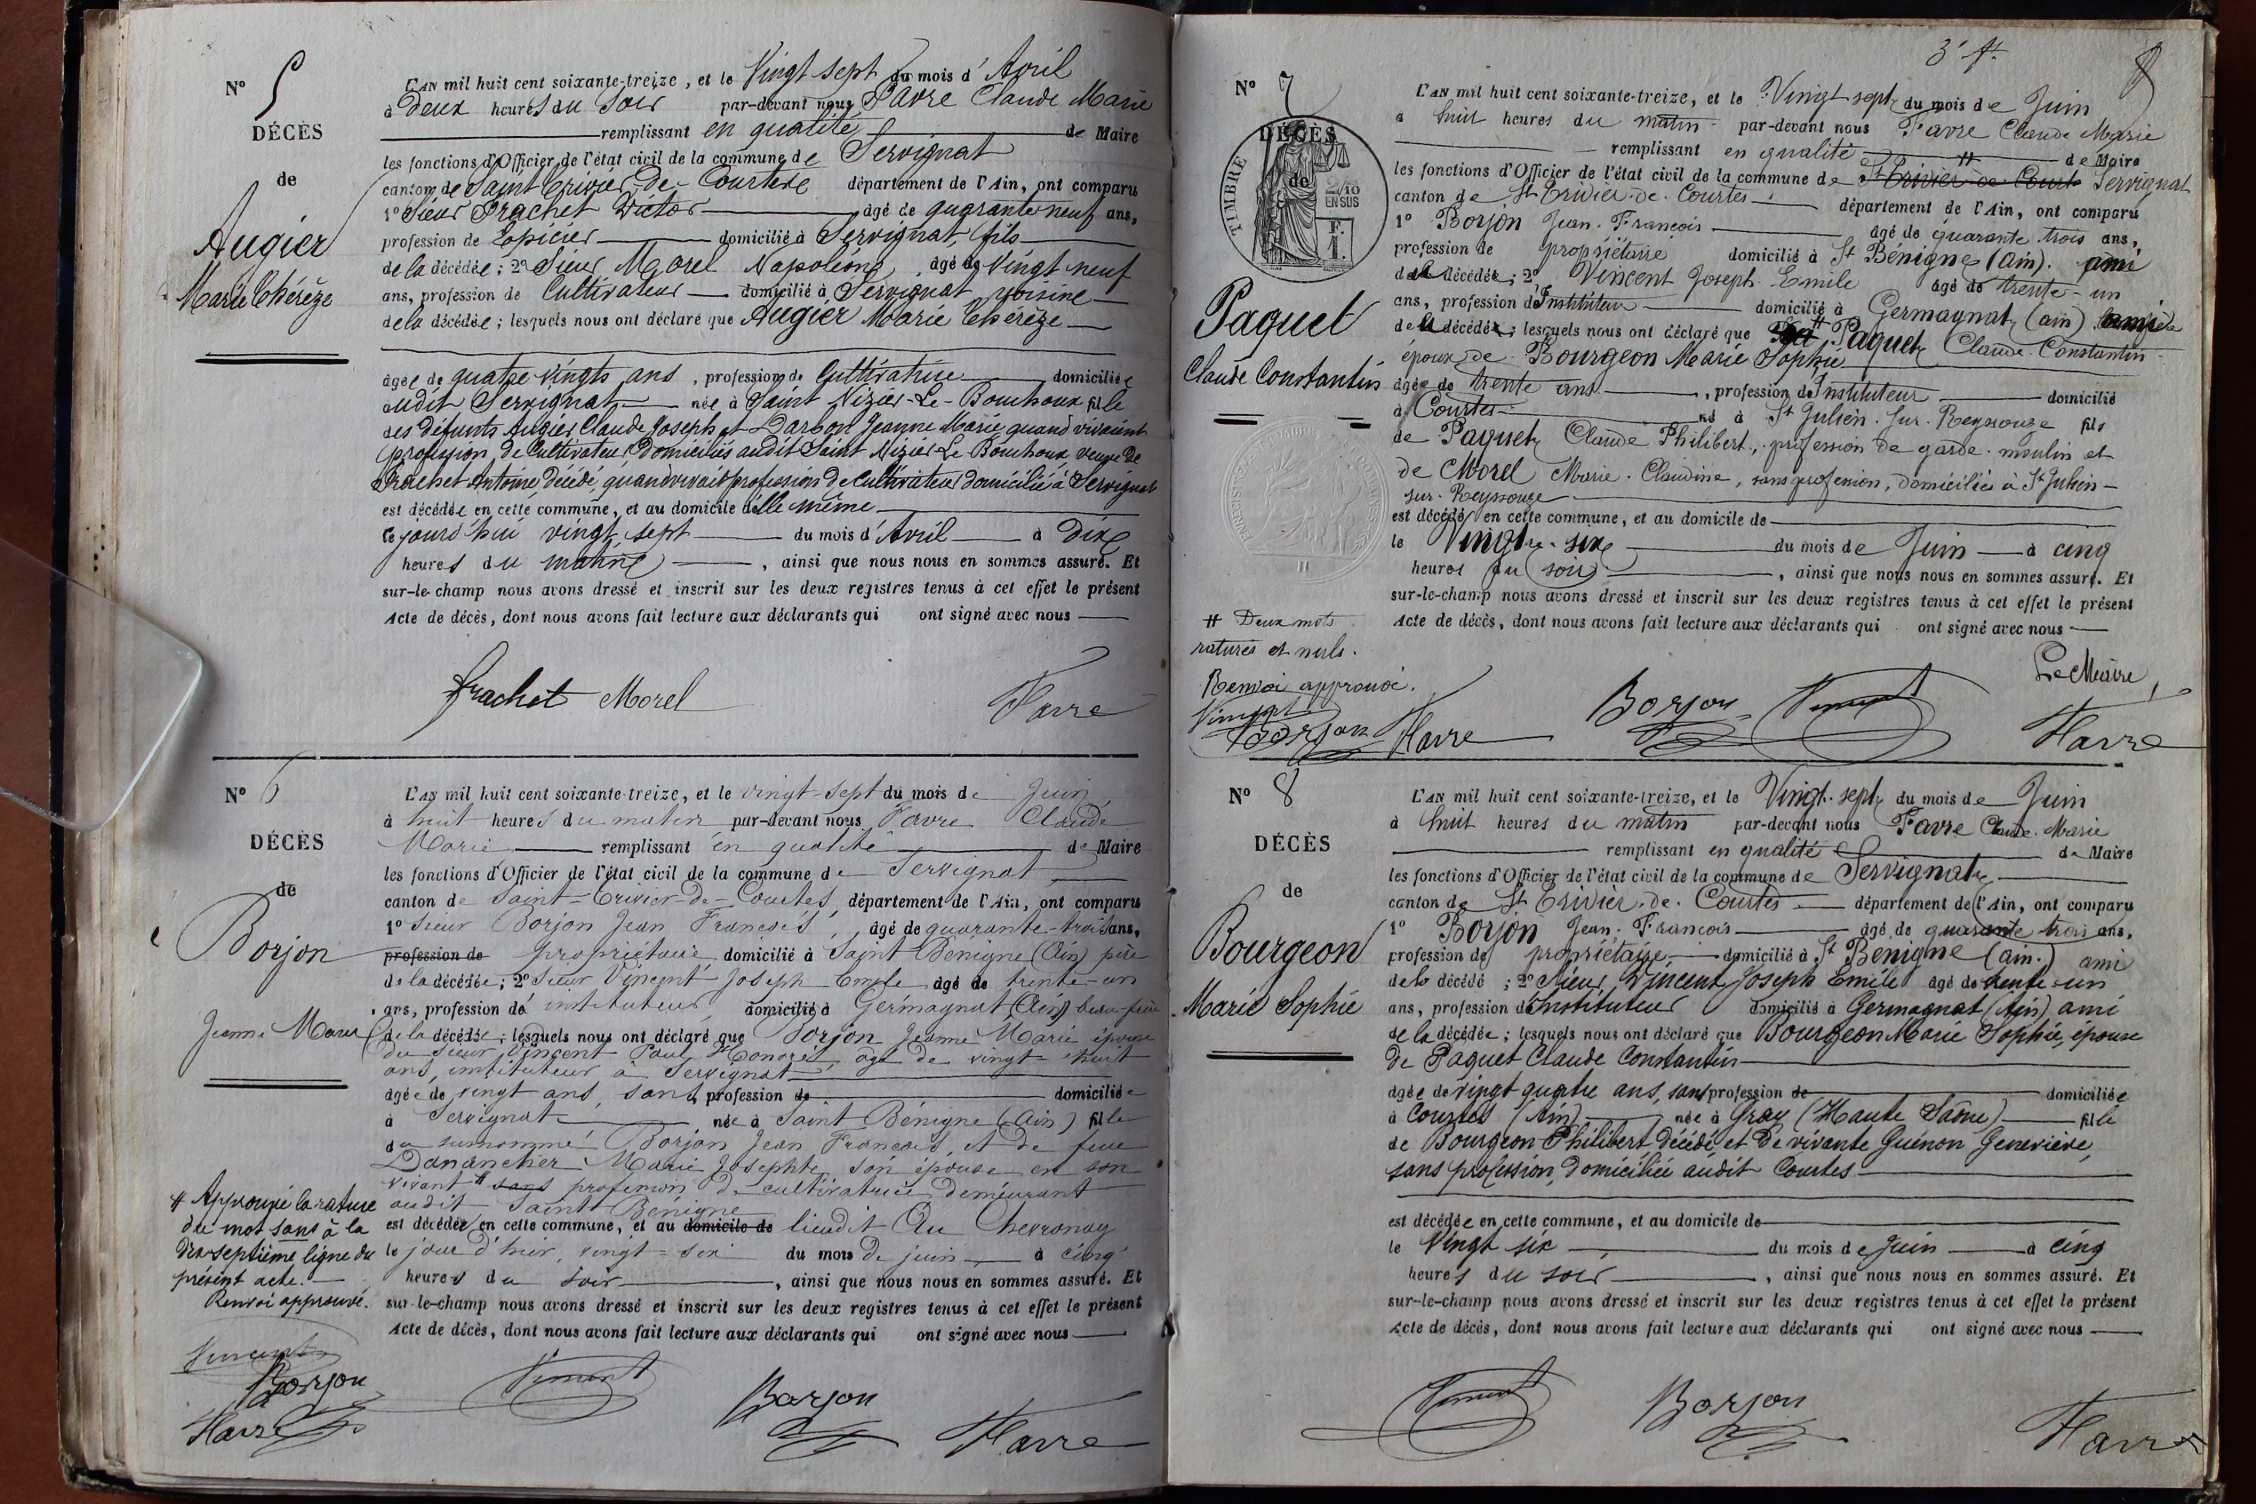 N° 5
DÉCÈS
de
Augier
Marie Thérèze
L'AN mil huit cent soixante-treize, et le Vingt sept du mois d'Avril
à deux heures du soir par-devant nous Favre Claude Marie
remplissant en qualité de Maire
les fonctions d'Officier de l'état civil de la commune de Servignat
canton de Saint Trivier-De-Courtese département de l'Ain, ont comparu
1° Sieur Frachet Victor âgé de quarante neuf ans,
profession de Epicier domicilié à Servignat, fils
de la décédée; 2° Sieur Morel Napoléone, âgé de vingt neuf
ans, profession de Cultivateur domicilié à Servignat voisine
de la décédée; lesquels nous ont déclaré que Augier Marie Thérèze
âgée de quatre-vingts ans, profession de Cultivatrice domiciliée
audit Servignat née à Saint Nizier-Le-Bouchoux fille
des défunts Augier Claude Joseph et Darbon Jeanne Marie, quand vivaient
profession de Cultivateur Domiciliés audit Saint Nizier Le Bouchoux veuve De
Frachet Antoine, décédé, quand vivait profession De Cultivateur domicilié à Servignat
est décédée en cette commune, et au domicile d'elle même
Ce jourd'hui vingt sept du mois d'Avril à Dix
heures du matin, ainsi que nous nous en sommes assuré. Et
sur-le-champ nous avons dressé et inscrit sur les deux registres tenus à cet effet le présent
Acte de décès, dont nous avons fait lecture aux déclarants qui ont signé avec nous
frachet Morel Favre
N° 6
DÉCÈS
de
Borjon
Jeanne Marie
L'AN mil huit cent soixante-treize, et le vingt-sept du mois de Juin
à huit heures du matin par-devant nous Favre Claude
Marie remplissant en qualité de Maire
les fonctions d'Officier de l'état civil de la commune de Servignat
canton de Saint-Trivier-De-Courtes département de l'Ain, ont comparu
1° Sieur Borjon Jean Francois, âgé de quarante-trois ans,
profession de propriétaire domicilié à Saint Bénigne (Ain) père
de la décédée; 2° Sieur Vincent Joseph Emile âgé de trente-un
ans, profession de instituteur domicilié à Germagnat (Ain) beau-frère
de la décédée; lesquels nous ont déclaré que Borjon Jeanne Marie épouse
du Sieur Vincent Paul Honoré, âgé de vingt-huit
ans, instituteur à Servignat
âgée de vingt ans, sans profession de domiciliée
à Servignat née à Saint Bénigne (Ain) fille
du surnommé Borjon Jean Francois, et de feue
Danancher Marie Josephte son épouse en son
vivant # sans profession de cultivatrice demeurant
audit Saint Bénigne
est décédée en cette commune, et au domicile de lieudit Au Chevronay
le jour d'hier, vingt-six du mois de juin à cinq
heures du soir, ainsi que nous nous en sommes assuré. Et
sur-le-champ nous avons dressé et inscrit sur les deux registres tenus à cet effet le présent
Acte de décès, dont nous avons fait lecture aux déclarants qui ont signé avec nous
# Approuvé la rature
du mot sans à la
dix-septième ligne du
présent acte.
Renvoi approuvé.
Vincent
Borjon
Favre
Vincent Borjon Favre
3e ft. 8
N° 7
DÉCÈS
de
TIMBRE
2/10
EN SUS
F.
1.
Paquet
Claude Constantin
L'AN mil huit cent soixante-treize, et le Vingt sept du mois de Juin
à huit heures du matin par-devant nous Favre Claude Marie
remplissant en qualité de Maire
les fonctions d'Officier de l'état civil de la commune de St Trivier-de-Court # Servignat
canton de St Trivier-de-Courtes département de l'Ain, ont comparu
1° Borjon Jean-Francois âgé de quarante trois ans,
profession de propriétaire domicilié à St Bénigne (ain). ami
du décédé; 2° Vincent Joseph-Emile âgé de trente-un
ans, profession d'Instituteur domicilié à Germagnat (ain) ami
de décédé; lesquels nous ont déclaré que # Paquet Claude-Constantin
époux de Bourgeon Marie Sophie
âgé de trente ans, profession de Instituteur domicilié
à Courtes né à St Julien-sur-Reyssouze fils
de Paquet Claude Philibert, profession de garde-moulin et
de Morel Marie-Claudine, sans profession, domiciliés à St Julien-
sur-Reyssouze
est décédé en cette commune, et au domicile de
le Vingt-six du mois de Juin à cinq
heures du soir, ainsi que nous nous en sommes assuré. Et
sur-le-champ nous avons dressé et inscrit sur les deux registres tenus à cet effet le présent
Acte de décès, dont nous avons fait lecture aux déclarants qui ont signé avec nous
# Deux mots
raturés et nuls.
Renvoi approuvé.
Vincent
Borjon Favre
Le Maire,
Borjon Vincent Favre
N° 8
DÉCÈS
de
Bourgeon
Marie Sophie
L'AN mil huit cent soixante-treize, et le Vingt-sept du mois de Juin
à huit heures du matin par-devant nous Favre Claude-Marie
remplissant en qualité de Maire
les fonctions d'Officier de l'état civil de la commune de Servignat
canton de St Trivier-de-Courtes département de l'Ain, ont comparu
1° Borjon Jean-Francois âgé de quarante trois ans,
profession de propriétaire domicilié à St Bénigne (ain.) ami
de la décédé; 2° Sieur Vincent Joseph Emile âgé de trente-un
ans, profession d'Instituteur domicilié à Germagnat (Ain) ami
de la décédée; lesquels nous ont déclaré que Bourgeon Marie Sophie, épouse
de Paquet Claude Constantin
âgée de vingt quatre ans, sans profession de domiciliée
à Courtes (Ain) née à Gray (Haute Saône) fille
de Bourgeon Philibert, décédé, et De vivante Guénon Geneviève,
sans profession, domiciliée audit Courtes
est décédée en cette commune, et au domicile de
le Vingt six du mois de Juin à cinq
heures du soir, ainsi que nous nous en sommes assuré. Et
sur-le-champ nous avons dressé et inscrit sur les deux registres tenus à cet effet le présent
Acte de décès, dont nous avons fait lecture aux déclarants qui ont signé avec nous
Vincent Borjon Favre